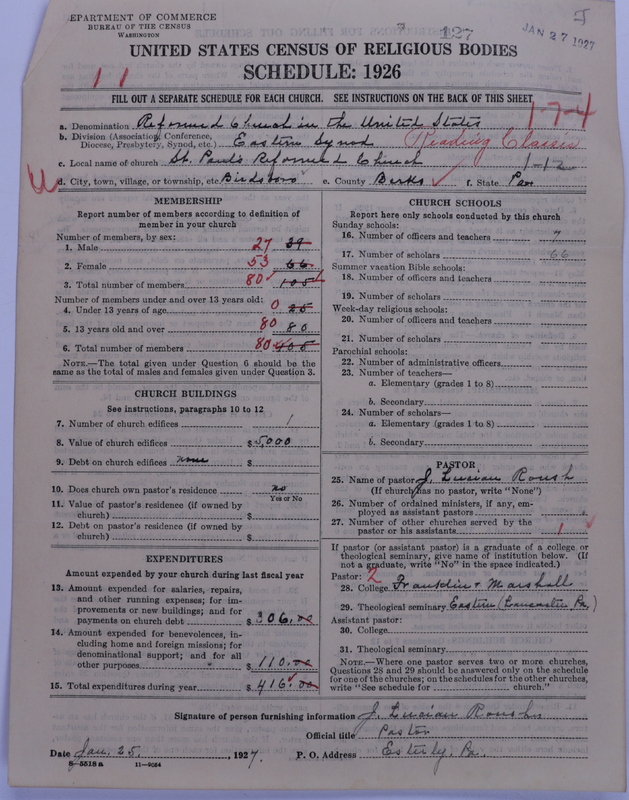 DEPARTMENT OF COMMERCE
BUREAU OF THE CENSUS
WASHINGTON
127
JAN 27 1927
UNITED STATES CENSUS OF RELIGIOUS BODIES
SCHEDULE: 1926
1 1
FILL OUT A SEPARATE SCHEDULE FOR EACH CHURCH. SEE INSTRUCTIONS ON THE BACK OF THIS SHEET
1-7-4
a. Denomination Reformed Church in the United States
b. Division (Association, Conference, Diocese, Presbytery, Synod, etc.) Eastern Synod Reading Classis
c. Local name of church St. Paul's Reformed Church 1-12
d. City, town, village, or township, etc. Birdsboro e. County Berks f. State Pa.
MEMBERSHIP
Report number of members according to definition of
member in your church
Number of members, by sex:
1. Male 27 39
2. Female 53 66
3. Total number of members 80 105
Number of members under and over 13 years old:
4. Under 13 years of age 0 25
5. 13 years old and over 80 80
6. Total number of members 80 105
NOTE.—The total given under Question 6 should be
same as the total of males and females given under Question 3.
CHURCH BUILDINGS
See instructions, paragraphs 10 to 12
7. Number of church edifices 1
8. Value of church edifices $5,000
9. Debt on church edifices none $
10. Does church own pastor's residence no
Yes or No
11. Value of pastor's residence (if owned by
church) $
12. Debt on pastor's residence (if owned by
church) $
EXPENDITURES
Amount expended by your church during last fiscal year
13. Amount expended for salaries, repairs,
and other running expenses; for im-
provements or new buildings; and for
payments on church debt $ 306.00
14. Amount expended for benevolences, in-
cluding home and foreign missions; for
denominational support; and for all
other purposes $ 110.00
15. Total expenditures during year $ 416.00
CHURCH SCHOOLS
Report here only schools conducted by this church
Sunday schools:
16. Number of officers and teachers 7
17. Number of scholars 66
Summer vacation Bible schools:
18. Number of officers and teachers
19. Number of scholars
Week-day religious schools:
20. Number of officers and teachers
21. Number of scholars
Parochial schools:
22. Number of administrative officers
23. Number of teachers—
a. Elementary (grades 1 to 8)
b. Secondary
24. Number of scholars—
a. Elementary (grades 1 to 8)
b. Secondary
PASTOR
25. Name of pastor J. Lucian Roush
(If church has no pastor, write "None")
26. Number of ordained ministers, if any, em-
ployed as assistant pastors
27. Number of other churches served by the
pastor or his assistants 1
If pastor (or assistant pastor) is a graduate of a college or
theological seminary, give name of institution below. (If
not a graduate, write "No" in the space indicated.)
Pastor: 2
28. College Franklin & Marshall
29. Theological seminary Eastern (Lancaster, Pa.)
Assistant pastor:
30. College
31. Theological seminary
NOTE.—Where one pastor serves two or more churches,
Questions 28 and 29 should be answered only on the schedule
for one of the churches; on the schedules for the other churches,
write "See schedule for church."
Signature of person furnishing information J. Lucian Roush
Official title Pastor
Date Jan. 25, 1927. P. O. Address Esterly, Pa.
8-5518 a 11-9024